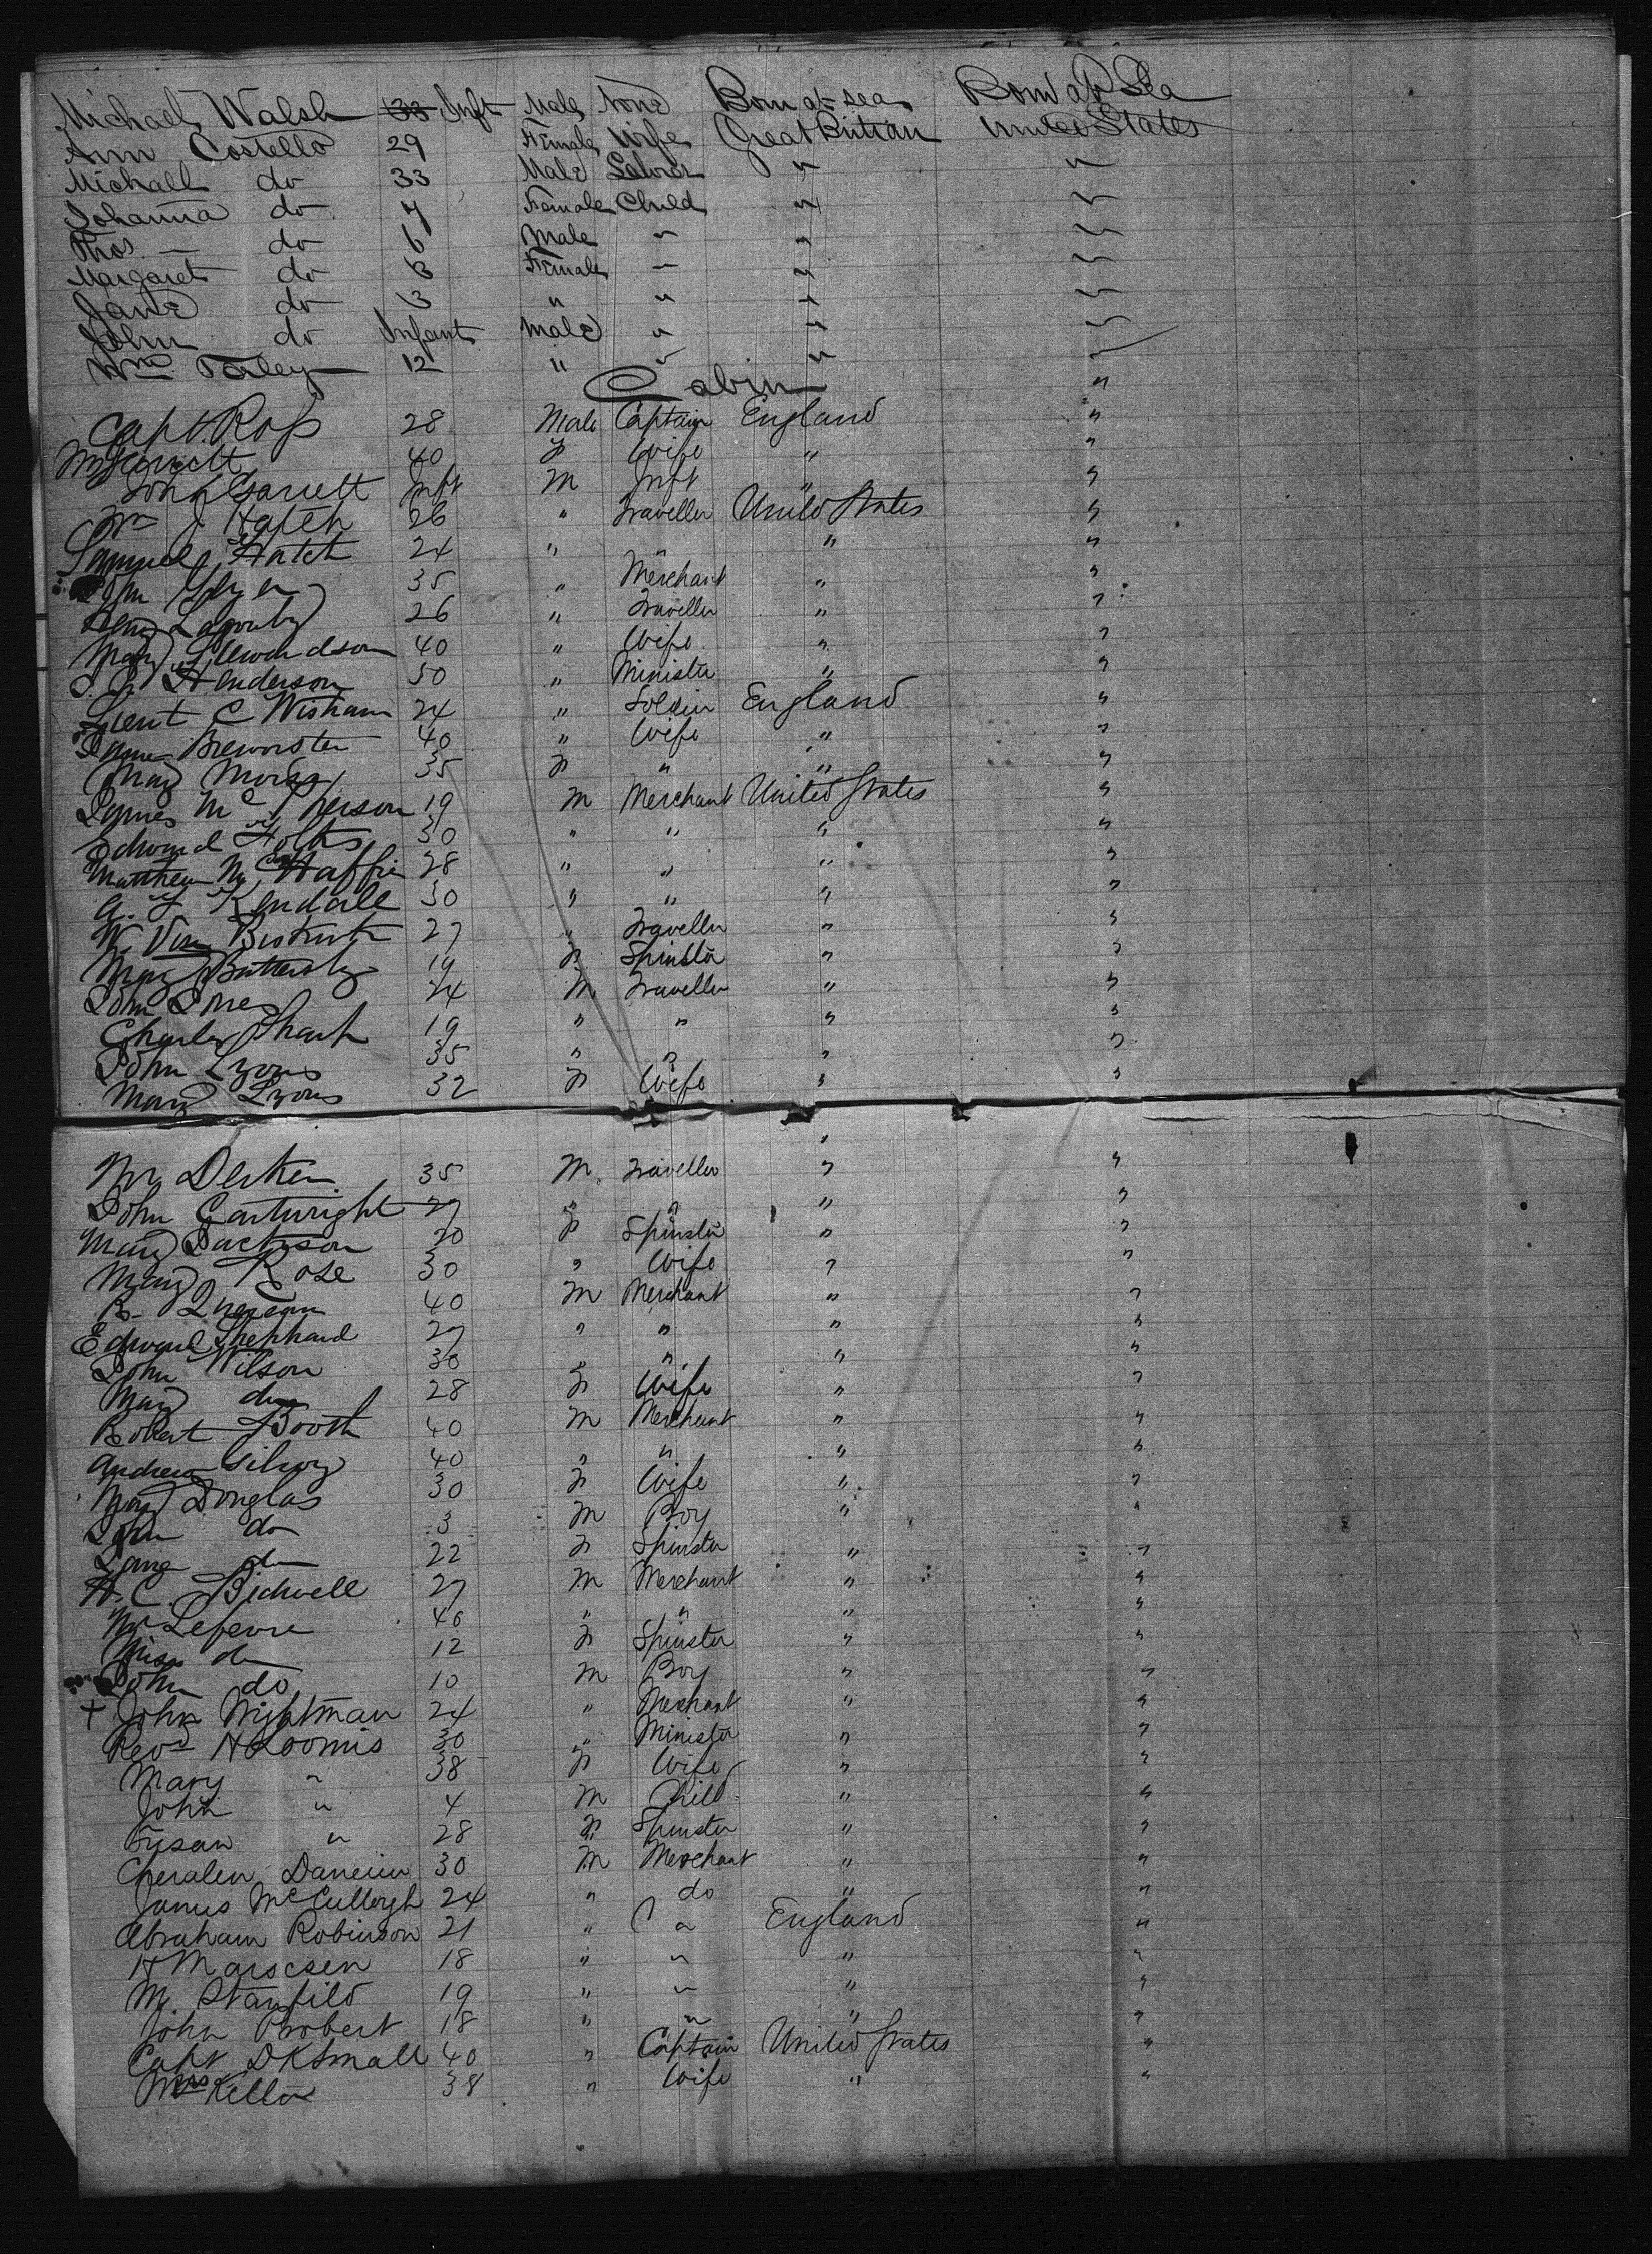 Michael Walsh 33 Inft Male None Born at sea Born at Sea
Ann Costello 29 Female Wife Great Britian United States
Michael do 33 Male Laborer " "
Johanna do 7 Female Child " "
Thos. — do 6 Male " " "
Margaret do Female " " "
Jane do 3 " " " "
John do Infant Male " " "
Wm Farley 12 " " " "
Cabin "
Capt. Ross 28 Male Captain England "
Garrett 40 F Wife " "
John Garrett Inft M Inft " "
Wm J Hatch 26 " Traveller United States "
Samuel Hatch 24 " " "
John 35 " Merchant " "
26 " Traveller " "
Mary 40 " Wife " "
Henderson 50 " Minister " "
Lieut C Wisham 24 " Soldier England "
Brewster 40 " Wife " "
Mary Morss 35 F " " "
James Mc Pherson 19 M Merchant United States "
Edward Holts 30 " " " "
Matthew Mc Haffie 28 " " " "
Kendall 30 " " " "
W. Van 27 " Traveller " "
Mary Buttersby 19 F Spinster " "
John 24 M Traveller " "
Charles 19 " " " "
John Lyons 35 " " " "
Mary Lyons 32 F Wife " "
"
Mr 35 M Traveller " "
John Cartwright 27 " " " "
Mary Jackson 20 F Spinster " "
Mary Rose 30 " Wife " "
40 M Merchant " "
Edward Shephard 27 " " " "
John Wilson 30 " " " "
Mary do 28 F Wife " "
Robert Booth 40 M Merchant " "
Andrew Gilroy 40 " " " "
Mary Douglas 30 F Wife " "
John do 3 M Boy " "
Jane do 22 F Spinster " "
H. C. Bidwell 27 M Merchant " "
Mr Lefevre 40 " " " "
Miss do 12 F Spinster " "
John do 10 M Boy " "
+ John Wightman 24 " Merchant " "
Revd H Loomis 30 " Minister " "
Mary " 38 F Wife " "
John " 4 M Child " "
Susan " 28 F Spinster " "
30 M Merchant " "
James McCullogh 24 " do " "
Abraham Robinson 21 " " England "
H 18 " " " "
M. Stanfild 19 " " " "
John Probert 18 " " " "
Capt D K Small 40 " Captain United States "
Mrs Kellor 38 " Wife " "